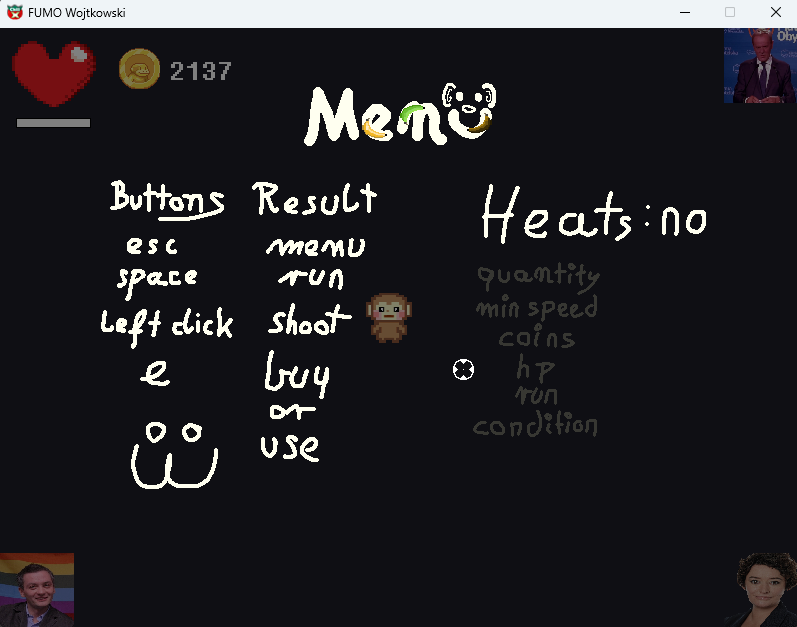 FUMO Wojtkowski
2137
Oby
Menu
Buttons Result
esc menu
space run
left click shoot
e buy
or
use
Heats:no
quantity
min speed
coins
hp
run
condition